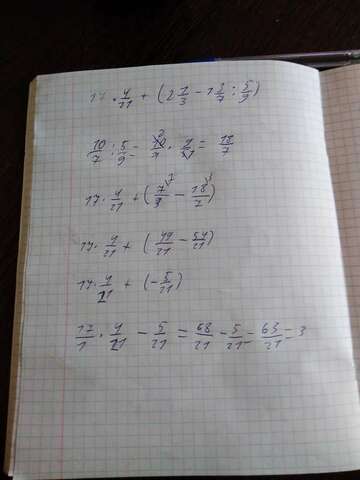 17 · 4/21 + (2 1/3 - 1 3/7 : 5/9)
10/7 : 5/9 = 10/7 · 9/5 = 18/7
17 · 4/21 + (7/3 - 18/7)
17 · 4/21 + (49/21 - 54/21)
17 · 4/21 + (-5/21)
17/1 · 4/21 - 5/21 = 68/21 - 5/21 = 63/21 = 3